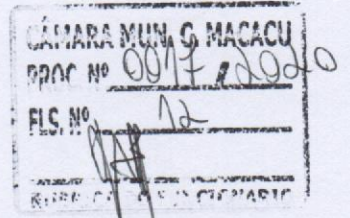 CÂMARA MUN. C MACACU
PROC. Nº 0017/2020
FLS. Nº 12